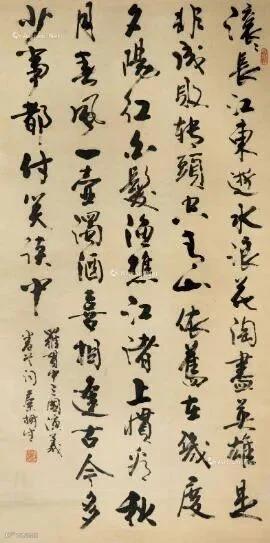 滚〻長江東逝水浪花淘盡英雄是
非成敗轉頭空青山依舊在幾度
夕陽紅白髮漁樵江渚上慣看秋
月春風一壺濁酒喜相逢古今多
少事都付笑談中
羅貫中三國演義
詞